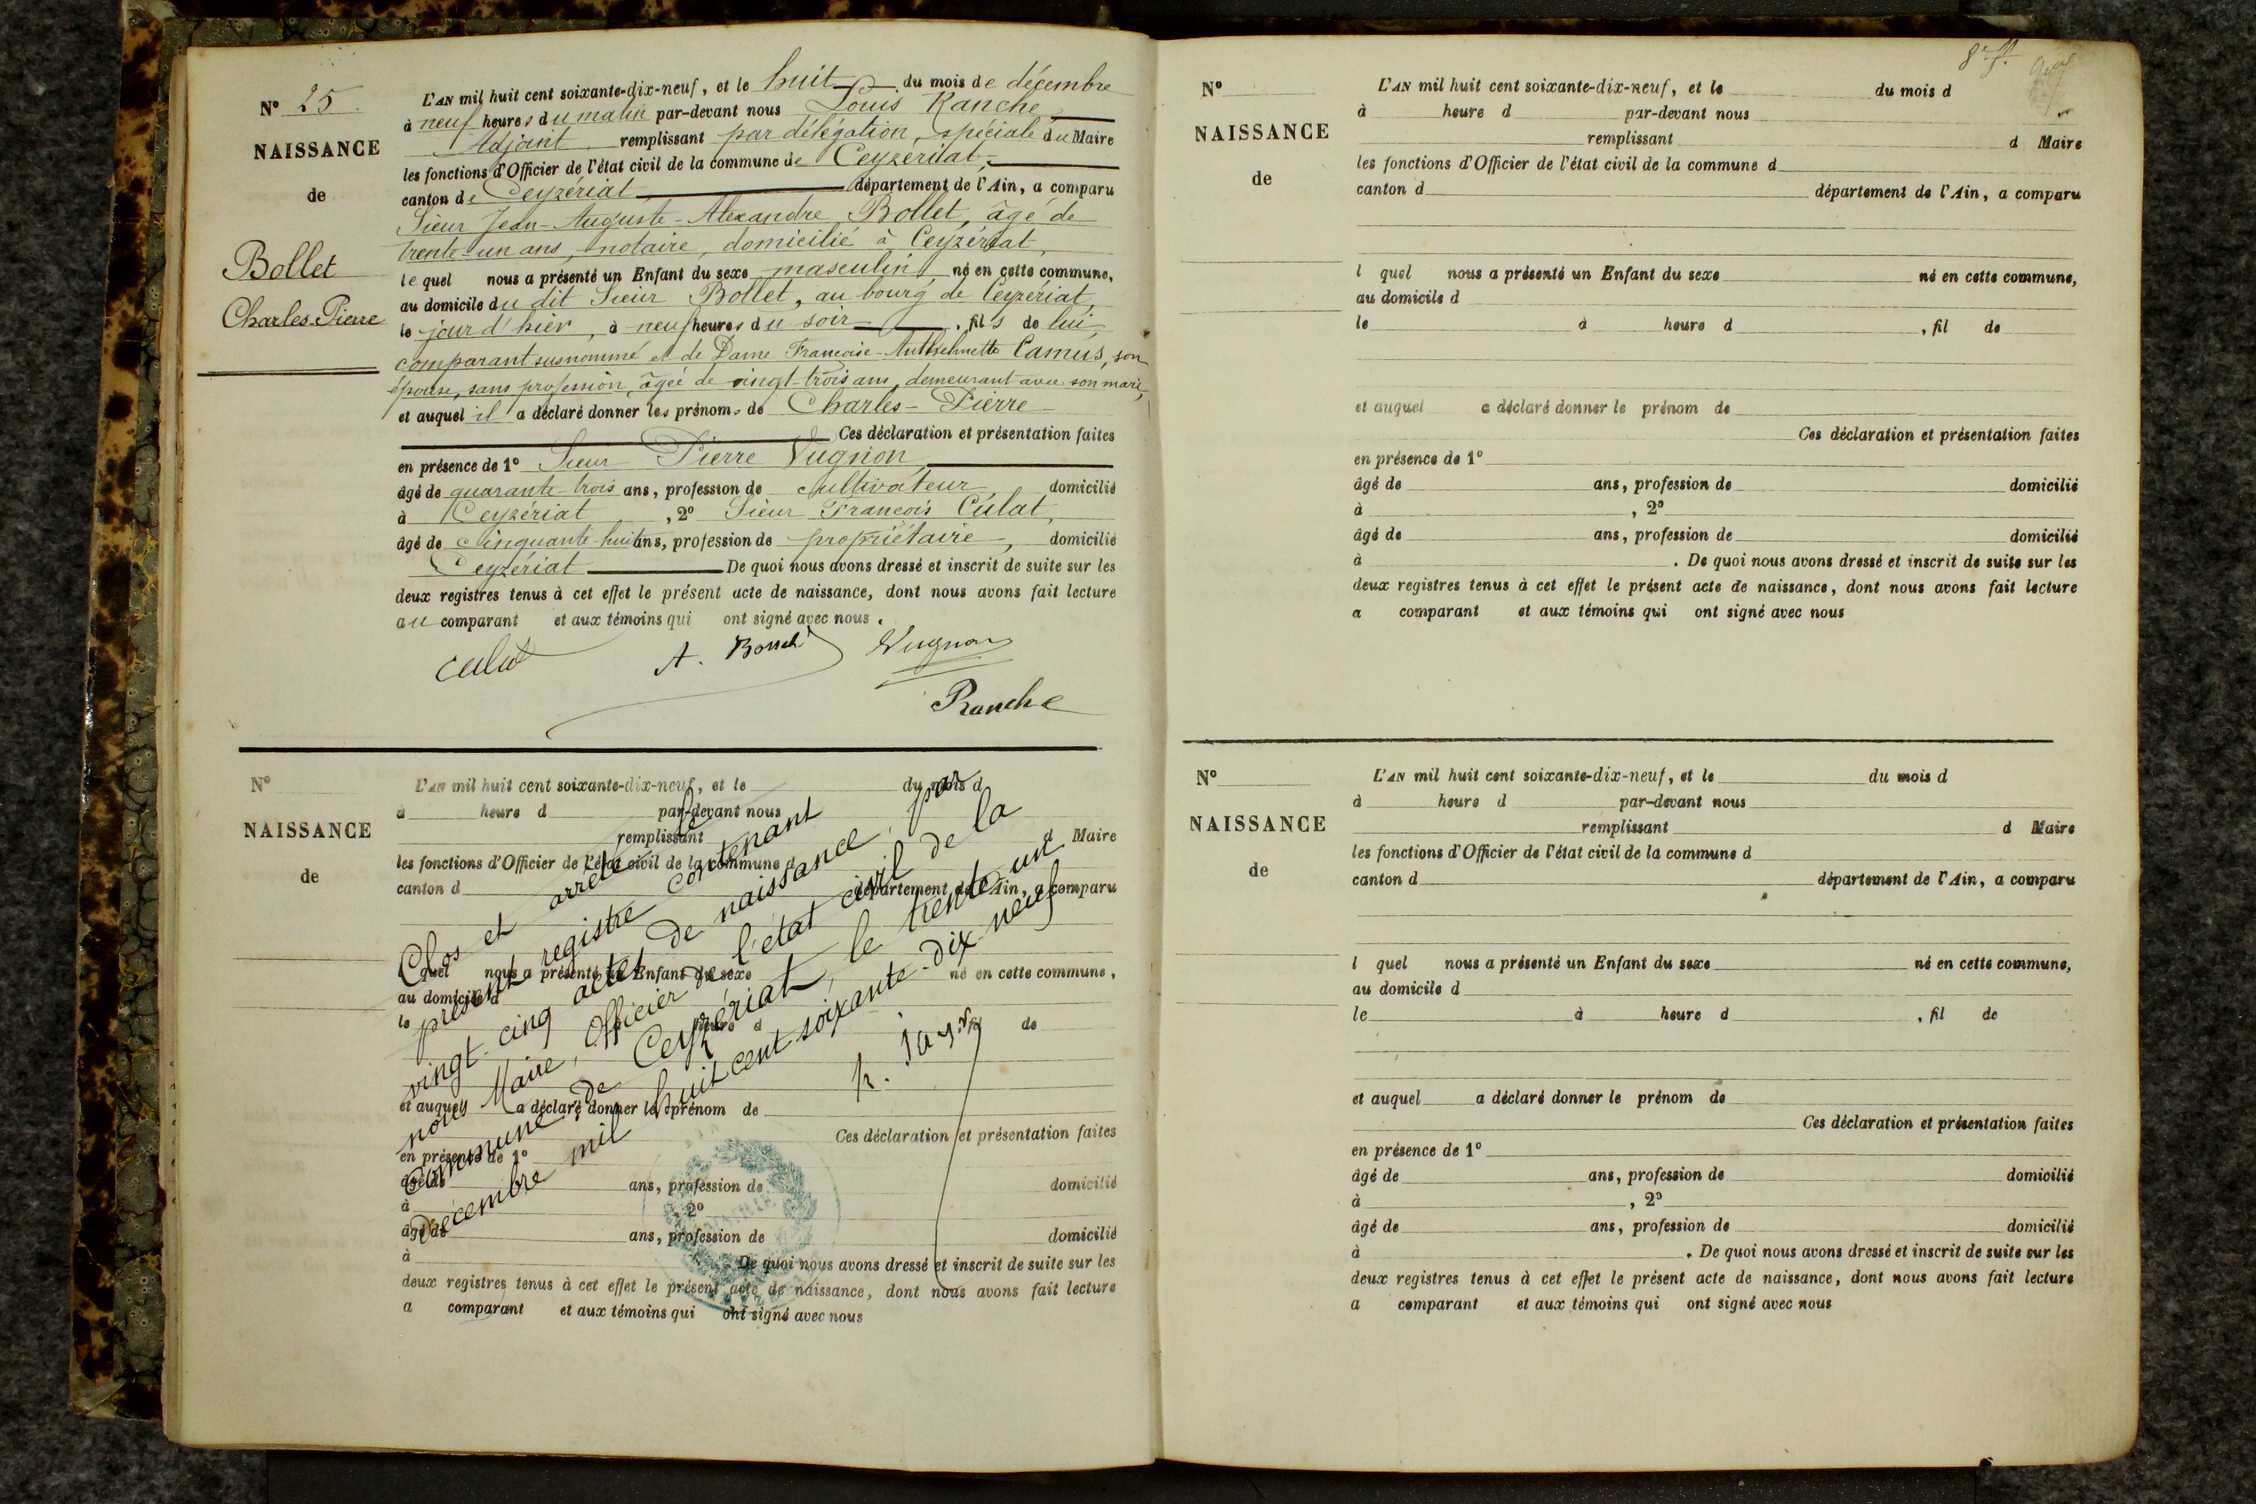 N° 25
NAISSANCE
de
Bollet
Charles-Pierre
L'AN mil huit cent soixante-dix-neuf, et le huit du mois de décembre
à neuf heures du matin par-devant nous Louis Ranche
Adjoint remplissant par délégation, spéciale du Maire
les fonctions d'Officier de l'état civil de la commune de Ceyzériat,
canton de Ceyzériat département de l'Ain, a comparu
Sieur Jean-Auguste-Alexandre Bollet, âgé de
trente-un ans, notaire, domicilié à Ceyzériat,
lequel nous a présenté un Enfant du sexe masculin né en cette commune,
au domicile du dit Sieur Bollet, au bourg de Ceyzériat,
le jour d'hier, à neuf heures du soir, fils de lui,
comparant susnommé et de Dame Francoise- Camus, son
épouse, sans profession, âgée de vingt-trois ans, demeurant avec son mari,
et auquel il a déclaré donner les prénoms de Charles-Pierre
Ces déclaration et présentation faites
en présence de 1° Sieur Pierre Vugnon,
âgé de quarante-trois ans, profession de cultivateur domicilié
à Ceyzériat, 2° Sieur Francois Culat,
âgé de cinquante-huit ans, profession de propriétaire, domicilié
Ceyzériat De quoi nous avons dressé et inscrit de suite sur les
deux registres tenus à cet effet le présent acte de naissance, dont nous avons fait lecture
au comparant et aux témoins qui ont signé avec nous.
Culat A. Bollet Vugnon
Ranche
N°
NAISSANCE
de
L'AN mil huit cent soixante-dix-neuf, et le du mois d
à heure d par-devant nous
remplissant d Maire
les fonctions d'Officier de l'état civil de la commune d
canton d département de l'Ain, a comparu
l quel nous a présenté un Enfant du sexe né en cette commune,
au domicile d
le à heure d , fil de
et auquel a déclaré donner le prénom de
Ces déclaration et présentation faites
en présence de 1°
âgé de ans, profession de domicilié
à , 2°
âgé de ans, profession de domicilié
à De quoi nous avons dressé et inscrit de suite sur les
deux registres tenus à cet effet le présent acte de naissance, dont nous avons fait lecture
a comparant et aux témoins qui ont signé avec nous
Clos et arrêté le
présent registre contenant
vingt-cinq actes de naissance, par
nous Maire, Officier de l'état civil de la
commune de Ceyzériat, le trente-un
Décembre mil huit cent soixante-dix-neuf
N°
NAISSANCE
de
L'AN mil huit cent soixante-dix-neuf, et le du mois d
à heure d par-devant nous
remplissant d Maire
les fonctions d'Officier de l'état civil de la commune d
canton d département de l'Ain, a comparu
l quel nous a présenté un Enfant du sexe né en cette commune,
au domicile d
le à heure d , fil de
et auquel a déclaré donner le prénom de
Ces déclaration et présentation faites
en présence de 1°
âgé de ans, profession de domicilié
à , 2°
âgé de ans, profession de domicilié
à . De quoi nous avons dressé et inscrit de suite sur les
deux registres tenus à cet effet le présent acte de naissance, dont nous avons fait lecture
a comparant et aux témoins qui ont signé avec nous
N°
NAISSANCE
de
L'AN mil huit cent soixante-dix-neuf, et le du mois d
à heure d par-devant nous
remplissant d Maire
les fonctions d'Officier de l'état civil de la commune d
canton d département de l'Ain, a comparu
l quel nous a présenté un Enfant du sexe né en cette commune,
au domicile d
le à heure d , fil de
et auquel a déclaré donner le prénom de
Ces déclaration et présentation faites
en présence de 1°
âgé de ans, profession de domicilié
à , 2°
âgé de ans, profession de domicilié
à . De quoi nous avons dressé et inscrit de suite sur les
deux registres tenus à cet effet le présent acte de naissance, dont nous avons fait lecture
a comparant et aux témoins qui ont signé avec nous